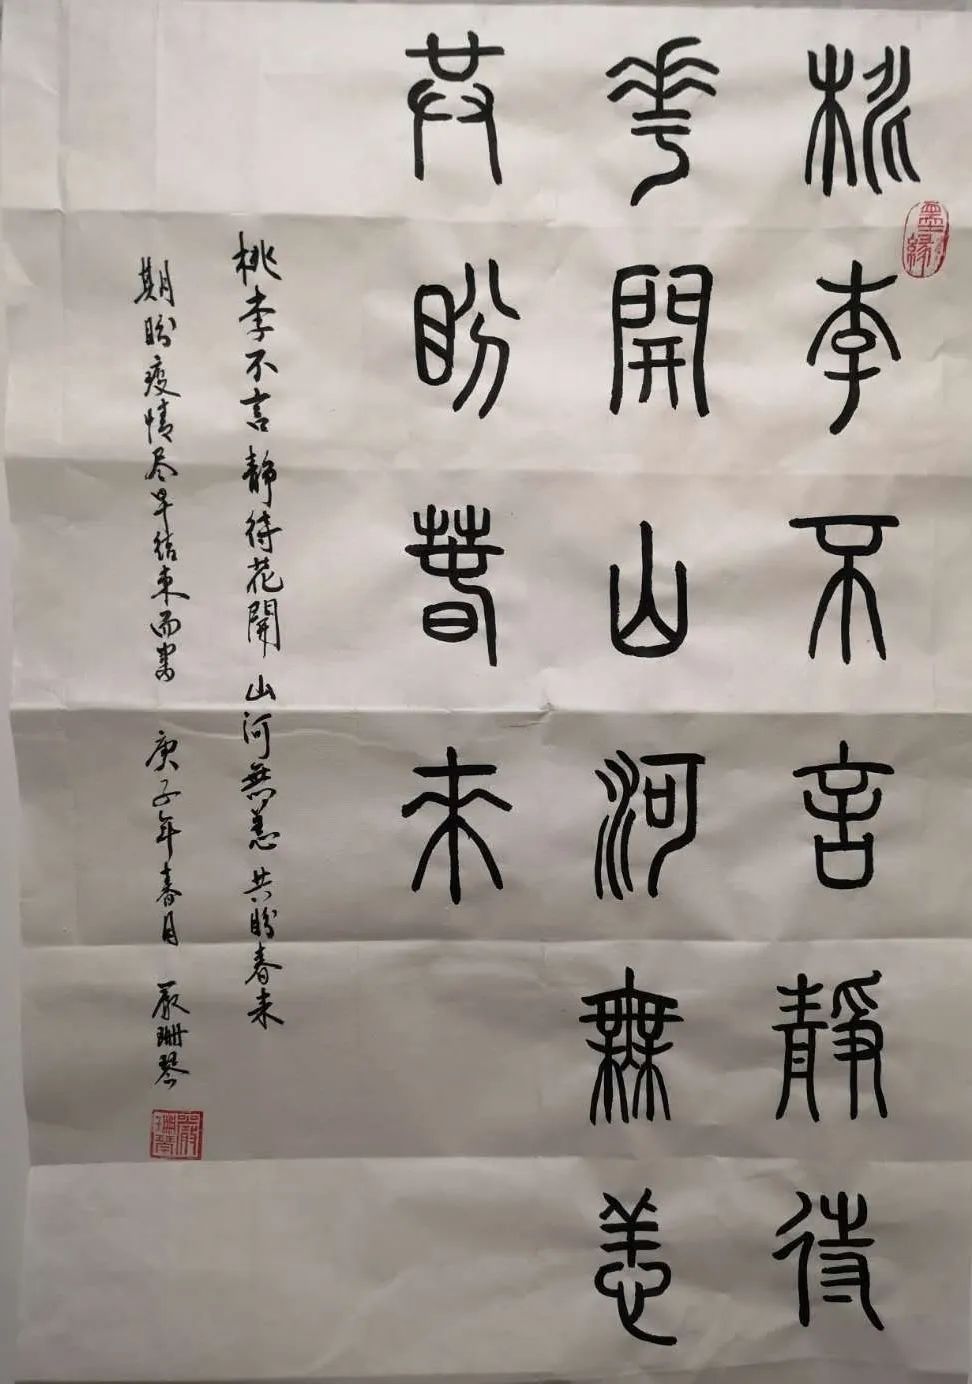 桃李不言靜待
華開山河無恙
共盼春來
桃李不言靜待花開山河無恙共盼春来
期盼疫情尽早结束而书 庚子年春月 严珊琴
墨緣
嚴珊琴